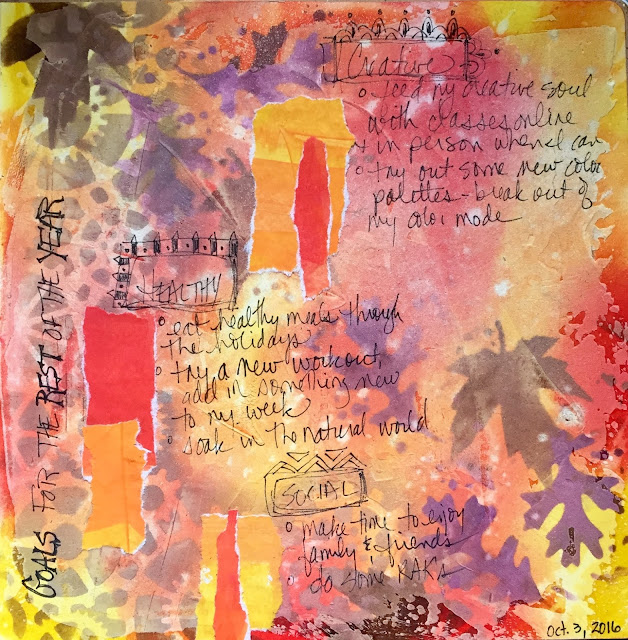 Creative
feed my creative soul
with classes online
+ in person when I can
try out some new color
palettes - break out of
my color mode
GOALS FOR THE REST OF THE YEAR
HEALTHY
eat healthy meals through
the holidays
try a new workout,
add in something new
to my week
soak in the natural world
SOCIAL
make time to enjoy
family & friends
do some RAKs
Oct. 3, 2016